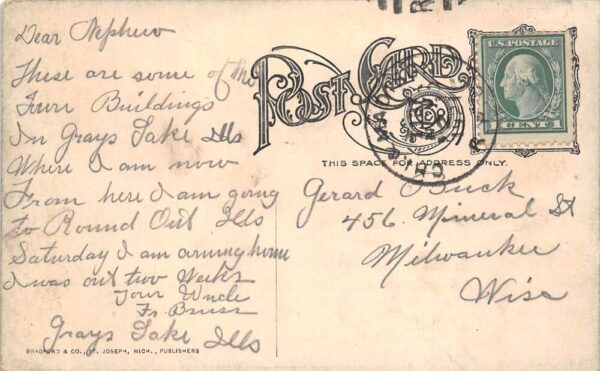 Dear Nephew
These are some of the
Town Buildings
In Grays Lake Ills
Where I am now
From here I am going
to Round Out Ills
Saturday I am coming home
I was out two Weeks
Your Uncle
Fr.
Grays Lake Ills
BRADFORD & CO., ST. JOSEPH, MICH., PUBLISHERS
POST CARD
THIS SPACE FOR ADDRESS ONLY.
U.S. POSTAGE
1 CENT 1
Gerard Buck
456 Mineral St
Milwaukee
Wisc